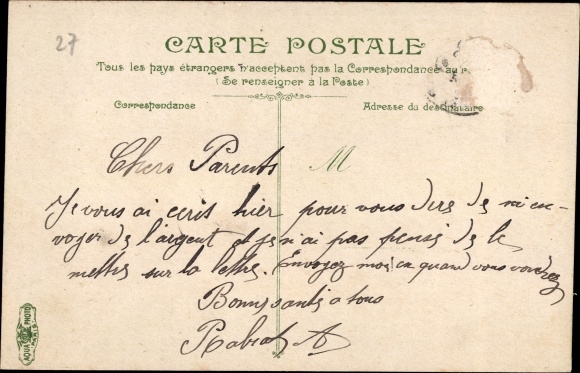 27
CARTE POSTALE
Tous les pays étrangers n'acceptent pas la Correspondance au
(Se renseigner à la Poste)
Correspondance
Adresse du destinataire
Chers Parents
M
Je vous ai ecrit hier pour vous dire de m'en-
voyer de l'argent et je n'ai pas pensé de le
mettre sur la lettre. Envoyez moi en quand vous voudrez
Bonne santé a tous
Rabiat A
AQUA PHOTO
PARIS